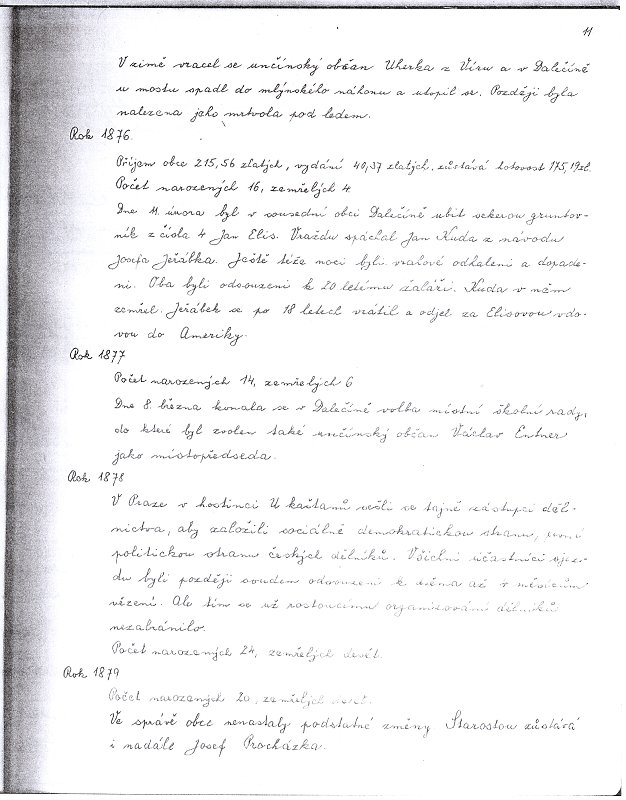 11
V zimě vracel se unčínský občan Uherka z Víru a v Dalečíně
u mostu spadl do mlýnského náhonu a utopil se. Později byla
nalezena jako mrtvola pod ledem.
Rok 1876
Příjem obce 215,56 zlatých, vydání 40,37 zlatých, zůstává hotovost 175,19 zl.
Počet narozených 16, zemřelých 4
Dne 11. února byl v sousední obci Dalečíně ubit sekerou gruntov-
ník z čísla 4 Jan Elis. Vraždu spáchal Jan Kuda z návodu
Josefa Jeřábka. Ještě téže noci byli vrahové odhaleni a dopade-
ni. Oba byli odsouzeni k 20 letému žaláři. Kuda v něm
zemřel. Jeřábek se po 18 letech vrátil a odjel za Elisovou vdo-
vou do Ameriky.
Rok 1877
Počet narozených 14, zemřelých 6
Dne 8. března konala se v Dalečíně volba místní školní rady,
do které byl zvolen také unčínský občan Václav Entner
jako místopředseda.
Rok 1878
V Praze v hostinci U kaštanů sešli se tajně zástupci děl-
nictva, aby založili sociálně demokratickou stranu, první
politickou stranu českých dělníků. Všichni účastníci sjez-
du byli později soudem odsouzeni k až měsícům
vězení. Ale tím se už rostoucímu organisování dělníků
nezabránilo.
Počet narozených 24, zemřelých deset.
Rok 1879
Počet narozených 20, zemřelých
Ve správě obce nenastaly podstatné změny Starostou zůstává
i nadále Josef Procházka.